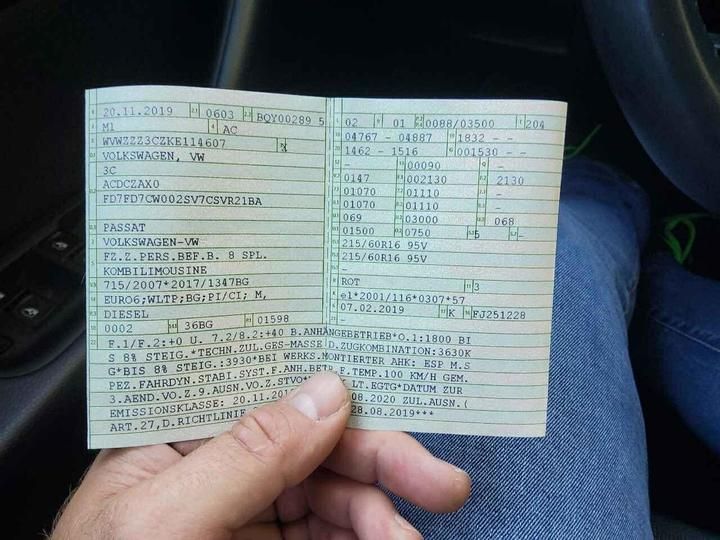 20.11.2019 0603 BQY00289 5
M1 AC
WVWZZZ3CZKE114607
VOLKSWAGEN, VW
3C
ACDCZAX0
FD7FD7CW002SV7CSVR21BA
PASSAT
VOLKSWAGEN-VW
FZ.Z.PERS.BEF.B. 8 SPL.
KOMBILIMOUSINE
715/2007*2017/1347BG
EURO6;WLTP;BG;PI/CI; M,
DIESEL
0002 36BG 01598
02 01 0088/03500 204
04767 - 04887 1832 - -
1462 - 1516 001530 - -
- 00090 -
0147 002130 2130
01070 01110 -
01070 01110 -
069 03000 068
01500 0750 5 -
215/60R16 95V
215/60R16 95V
-
ROT 3
e1*2001/116*0307*57
07.02.2019 K FJ251228
-
F.1/F.2:+0 U. 7.2/8.2:+40 B.ANHÄNGEBETRIEB*O.1:1800 BI
S 8% STEIG.*TECHN.ZUL.GES-MASSE D.ZUGKOMBINATION:3630K
G*BIS 8% STEIG.:3930*BEI WERKS.MONTIERTER AHK: ESP M.S
PEZ.FAHRDYN.STABI.SYST.F.ANH.BETR.F.TEMP.100 KM/H GEM.
3.AEND.VO.Z.9.AUSN.VO.Z.STVO* LT.EGTG*DATUM ZUR
EMISSIONSKLASSE: 20.11.201 .08.2020 ZUL.AUSN.(
ART.27,D.RICHTLINIE 28.08.2019***